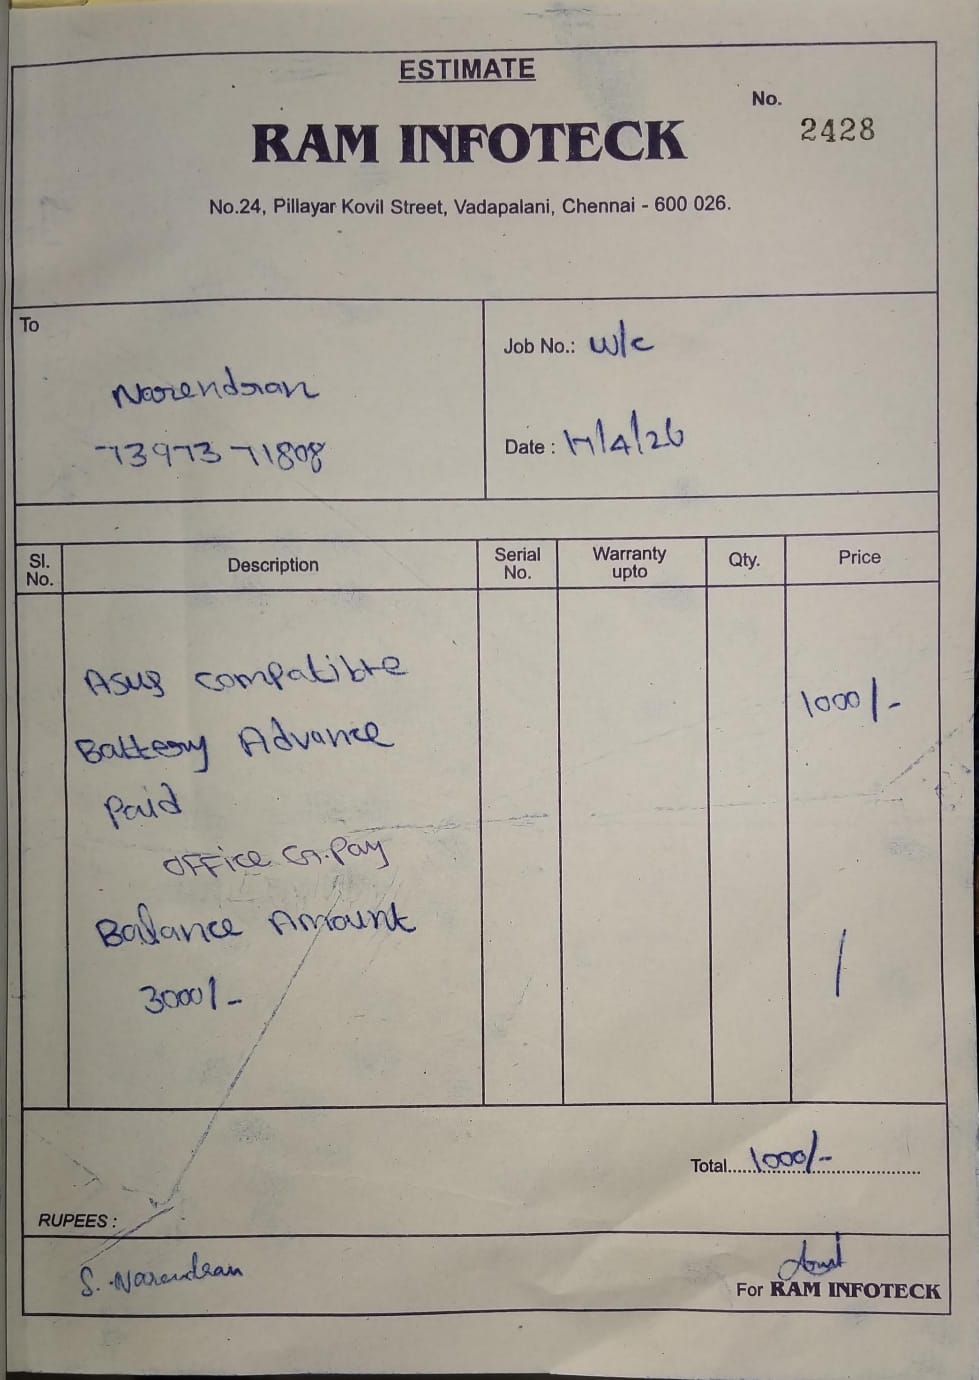 ESTIMATE
No.
2428
RAM INFOTECK
No.24, Pillayar Kovil Street, Vadapalani, Chennai - 600 026.
To
Narendran
73973 71808
Job No.: W/c
Date : 17/4/26
Sl. No. Description Serial No. Warranty upto Qty. Price
Asus compatible
1000/-
Battery Advance
Paid
OFFice G.Pay
Balance Amount
3000/-
Total....1000/-....
RUPEES :
S. Narendran
For RAM INFOTECK